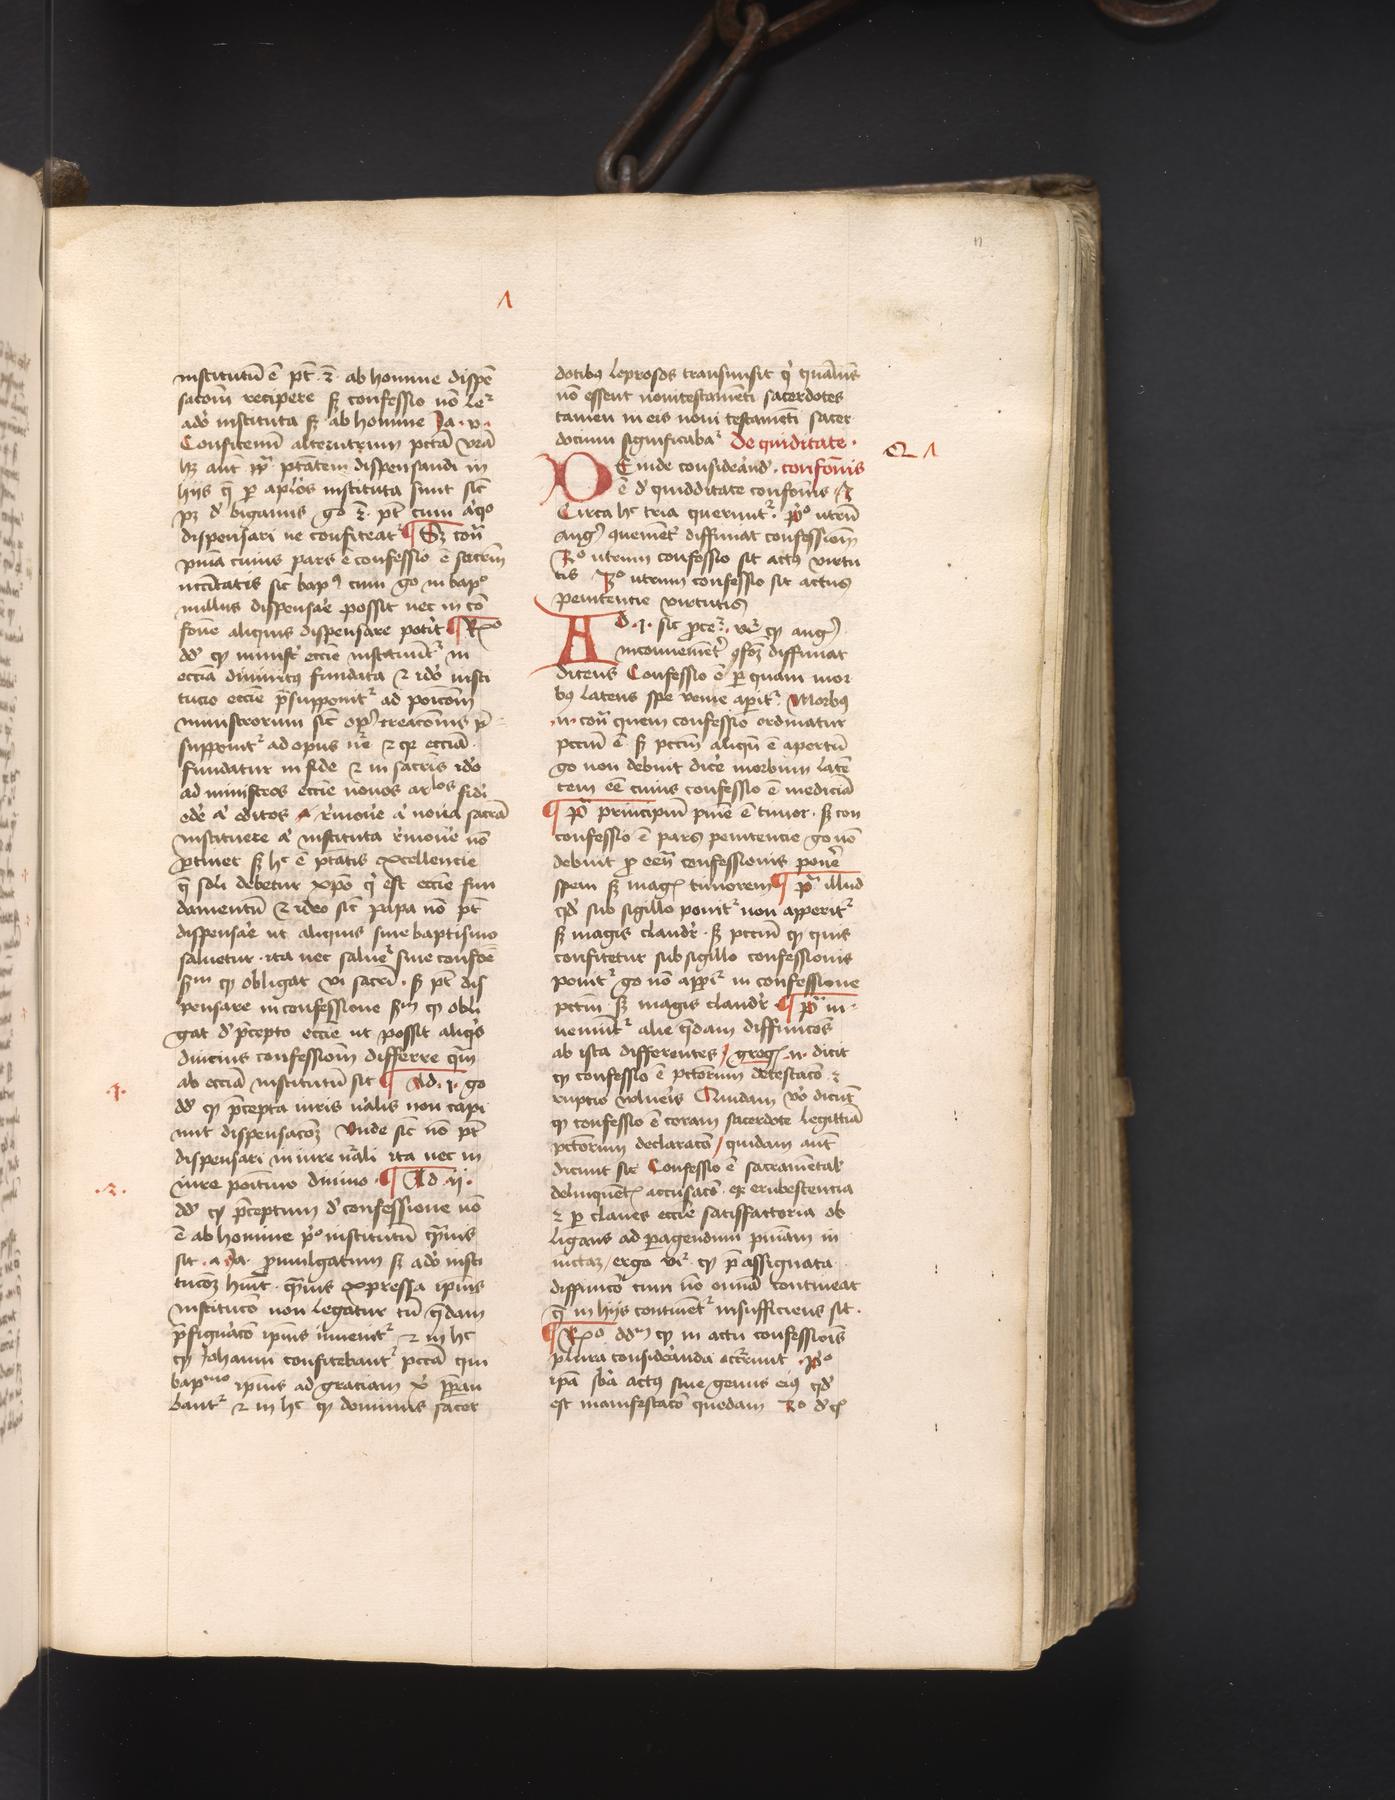 11
institutū ē pt̄ ⁊̄ ab homine dispē
sacōm recipere sꝫ confessio nō le
ado instituta sꝫ ab homine Ja · v ·
Confitemī alterutrum pctā vrā
hꝫ aut ptātem dispensandi in
hijs q̄ ꝑ aplōs instituta sunt sic̄
pꝫ d̄ bigamis go ⁊ pt̄ cum aliqo
dispensari ne confiteat᷑ ¶ Sꝫ cōᷓ
pnīa cuius pars ē confessio ē sacrm̄
nccītatis sic̄ bapꝰ cum go in bapo
nullus dispensare possit nec in cō
fōne aliquis dispensare potit ¶ Rxo
dd̄ ꝙ ministri ecclē instituunt᷑ in
ecclīa divinitꝰ fundata ⁊ ido insti
tucio ecclē p̄supponit᷑ ad ponēm
ministrorum sic̄ opꝰ creacōnis p̄
supponit᷑ ad opus nr̄e ⁊ qr ecclīa
fundatur in fide ⁊ in sacris ido
ad ministros ecclē novos arlos fidi
edere a᷑ editos rͥmovē a᷑ nova sacrā
instituere a᷑ instituta rͥmovē nō
ꝑtinet sꝫ hc ē ptātis excellencie
q̄ soli debetur xpō qͥ est ecclē fun
damentū ⁊ ideo sic̄ papa nō pt̄
dispensare ut aliquis sine baptismo
salvetur · ita nec salvet sine confōē
scdm ꝙ obligat vi sacri · sꝫ pt̄ dis
pensare in confessione scdm ꝙ obli
gat d̄ p̄cepto ecclē ut possit aliqͥs
diucius confessionē differre qᷓm
ab ecclīa institutū sit ¶ Ad · j · go
dd̄ ꝙ p̄cepta iuris nālis non capi
unt dispensacōꝫ Unde sic̄ nō pt̄
dispensari in iure nāli ita nec in
iure poitivo divino ¶ Ad · ij ·
dd̄ ꝙ p̄ceptum d̄ confessione nō
ē ab homine pͥo institutū qᷓmvis
sit · a Ja · promulgatum sꝫ ado insti
tucōꝫ hūit · qᷓmvis expressa ipius
institucō non legatur tn̄ qᷓdam
p̄figuracō ipius invenit᷑ ⁊ in hc
ꝙ Johanni confitebant᷑ pctā qui
bapmo ipius ad graciam xͥ ꝑparau
bant᷑ ⁊ in hc ꝙ dominus sacer
dotibꝰ leprosos transmisit qͥ quāvis
nō essent novi testamēti sacerdotes
tamen in eis novi testamēti sacer
docium significaba᷑ De quiditate ·
DEinde considerand̄ · confōnis
ē d̄ quidditate confōnis ⁊
Circa hc tria querunt᷑ · pͥo utrū
augꝰ quenient᷑ diffiniat confessionē
R̄o utrum confessio sit actꝰ virtu
tis 3o utrum confessio sit actus
penitencie virtutis
AD · j · sic ꝓce᷑ · ur̄ ꝙ augꝰ
inconvenient᷑ ꝯfōꝫ diffiniat
dicens Confessio ē ꝑ quam mor
bꝰ latens spe venie apit᷑ Morbꝰ
· n · cōᷓ quem confessio ordinatur
pctm̄ ē sꝫ pctm̄ aliqn̄ ē apertū
go non debuit dicē morbum latē
tem eē cuius confessio ē medicīa
¶ Pᷓ principiū pnīe ē timor · sꝫ con
confessio ē pars penitencie go nō
debuit ꝓ cā confessionis ponē
spem sꝫ magꝭ timorem ¶ Pᷓ illud
qd̄ sub sigillo ponit᷑ non apperit᷑
sꝫ magis claudit᷑ · sꝫ pctm̄ ꝙ quis
confitetur sub sigillo confessionis
ponit᷑ go nō appit᷑ in confessione
pctm̄ sꝫ magis claudit᷑ ¶ Pᷓ in
veniūt᷑ alie qᷓdam diffinicōes
ab ista differentes / gregꝭ · n · dicit
ꝙ confessio ē pctorum detestacō ⁊
ruptio vulneris Quidam v̄o dicūt
ꝙ confessio ē coram sacerdote legittīa
pctorum declaracō / quidam aut̄
dicunt sic Confessio ē sacramentalͥ
delinquentꝭ accusacō · ex erubescencia
⁊ ꝑ claves ecclē satisfactoria ob
ligans ad ꝑagendum pnīam in
iunctaꝫ / ergo ur̄ ꝙ p̄assignata
diffinicō cum nō omīa contineat
q̄ in hijs continēt᷑ insufficiens sit ·
¶ Rxo dd̄m ꝙ in actu confessiōis
plura consideranda occurunt · pͥo
ipā sbā actꝰ sive genus eiꝰ qd̄
est manifestacō quedam 2o d̄ qͦ